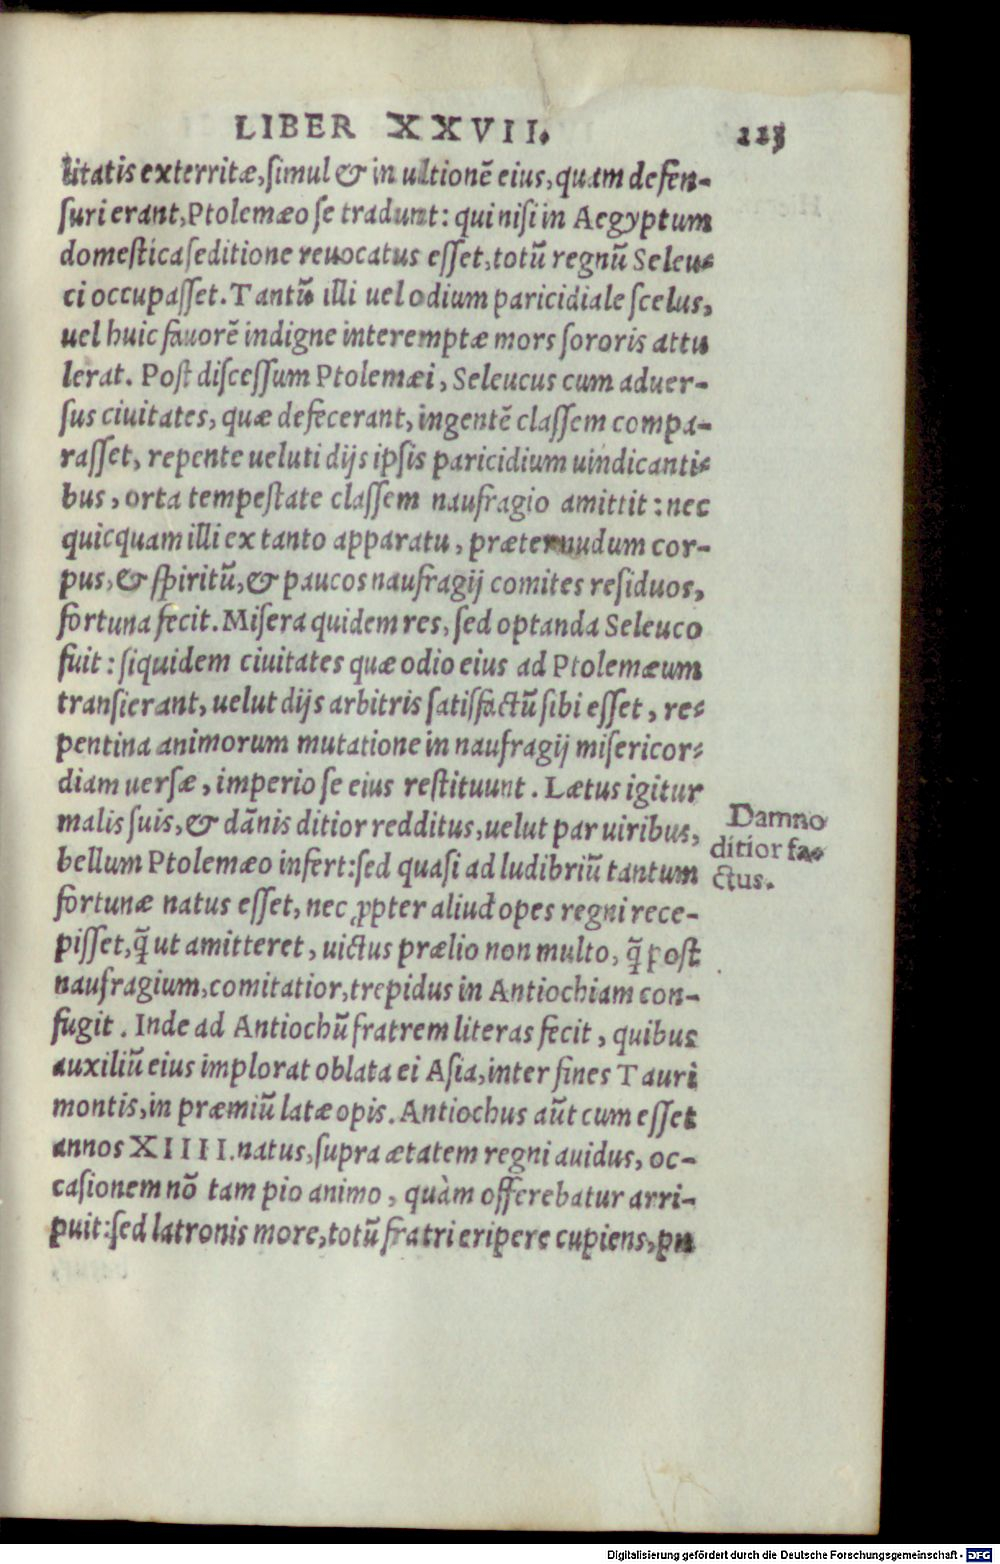 LIBER XXVII. 113
litatis exterritæ, simul & in ultionē eius, quam defen-
suri erant, Ptolemæo se tradunt: qui nisi in Aegyptum
domestica seditione reuocatus esset, totū regnū Seleu-
ci occupasset. Tantū illi uel odium paricidiale scelus,
uel huic fauorē indigne interemptæ mors sororis attu
lerat. Post discessum Ptolemæi, Seleucus cum aduer-
sus ciuitates, quæ defecerant, ingentē classem compa-
rasset, repente ueluti dijs ipsis paricidium uindicanti-
bus, orta tempestate classem naufragio amittit: nec
quicquam illi ex tanto apparatu, præter nudum cor-
pus, & spiritū, & paucos naufragij comites residuos,
fortuna fecit. Misera quidem res, sed optanda Seleuco
fuit: siquidem ciuitates quæ odio eius ad Ptolemæum
transierant, uelut dijs arbitris satisfactū sibi esset, re-
pentina animorum mutatione in naufragij misericor-
diam uersæ, imperio se eius restituunt. Lætus igitur
malis suis, & dānis ditior redditus, uelut par uiribus,
bellum Ptolemæo infert: sed quasi ad ludibriū tantum
fortunæ natus esset, nec ꝓpter aliud opes regni rece-
pisset, q̄ ut amitteret, uictus prælio non multo, q̄ post
naufragium, comitatior, trepidus in Antiochiam con-
fugit. Inde ad Antiochū fratrem literas fecit, quibus
auxiliū eius implorat oblata ei Asia, inter fines Tauri
montis, in præmiū latæ opis. Antiochus aūt cum esset
annos XIIII. natus, supra ætatem regni auidus, oc-
casionem nō tam pio animo, quàm offerebatur arri-
puit: sed latronis more, totū fratri eripere cupiens, pu
Damno
ditior fa-
ctus.
Digitalisierung gefördert durch die Deutsche Forschungsgemeinschaft - DFG